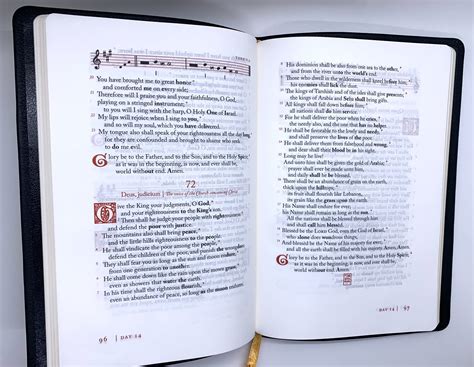 You have brought me to great honor*
and comforted me on every side;
Therefore will I praise you and your faithfulness, O God,
playing on a stringed instrument;*
to you will I sing with the harp, O Holy One of Israel.
My lips will rejoice when I sing to you,*
and so will my soul, which you have delivered.
My tongue also shall speak of your righteousness all the day long,*
for they are confounded and brought to shame who seek
to do me evil.
Glory be to the Father, and to the Son, and to the Holy Spirit;*
as it was in the beginning, is now, and ever shall be,
world without end. Amen.
72
Deus, judicium | The voice of the Church concerning Christ
Give the King your judgments, O God,*
and your righteousness to the King's son.
Then shall he judge your people with righteousness*
and defend the poor with justice.
The mountains also shall bring peace,*
and the little hills righteousness to the people.
He shall vindicate the poor among the people,*
defend the children of the poor, and punish the wrongdoer.
They shall fear you as long as the sun and moon endure,*
from one generation to another.
He shall come down like the rain upon the mown grass,*
even as showers that water the earth.
In his time shall the righteous flourish,*
even an abundance of peace, so long as the moon endures.
96 | DAY 14
His dominion shall be also from one sea to the other,*
and from the river unto the world's end.
Those who dwell in the wilderness shall kneel before him;*
his enemies shall lick the dust.
The kings of Tarshish and of the isles shall give presents;*
the kings of Arabia and Seba shall bring gifts.
All kings shall fall down before him;*
all nations shall do him service.
For he shall deliver the poor when he cries,*
the needy also, and the one who has no helper.
He shall be favorable to the lowly and needy,*
and shall preserve the lives of the poor.
He shall deliver them from falsehood and wrong,*
and dear shall their blood be in his sight.
Long may he live!
And unto him shall be given the gold of Arabia;*
prayer shall ever be made unto him, and daily shall he be praised.
There shall be an abundance of grain on the earth,
thick upon the hilltops;*
its fruit shall flourish like Lebanon,
its grain like the grass upon the earth.
His Name shall endure for ever;
his Name shall remain as long as the sun.*
All the nations shall be blessed through him and shall call him blessed.
Blessed be the Lord God, even the God of Israel,*
who alone does wondrous things;
And blessed be the Name of his majesty for ever;*
and all the earth shall be filled with his majesty. Amen. Amen.
Glory be to the Father, and to the Son, and to the Holy Spirit;*
as it was in the beginning, is now, and ever shall be,
world without end. Amen.
DAY 14 | 97